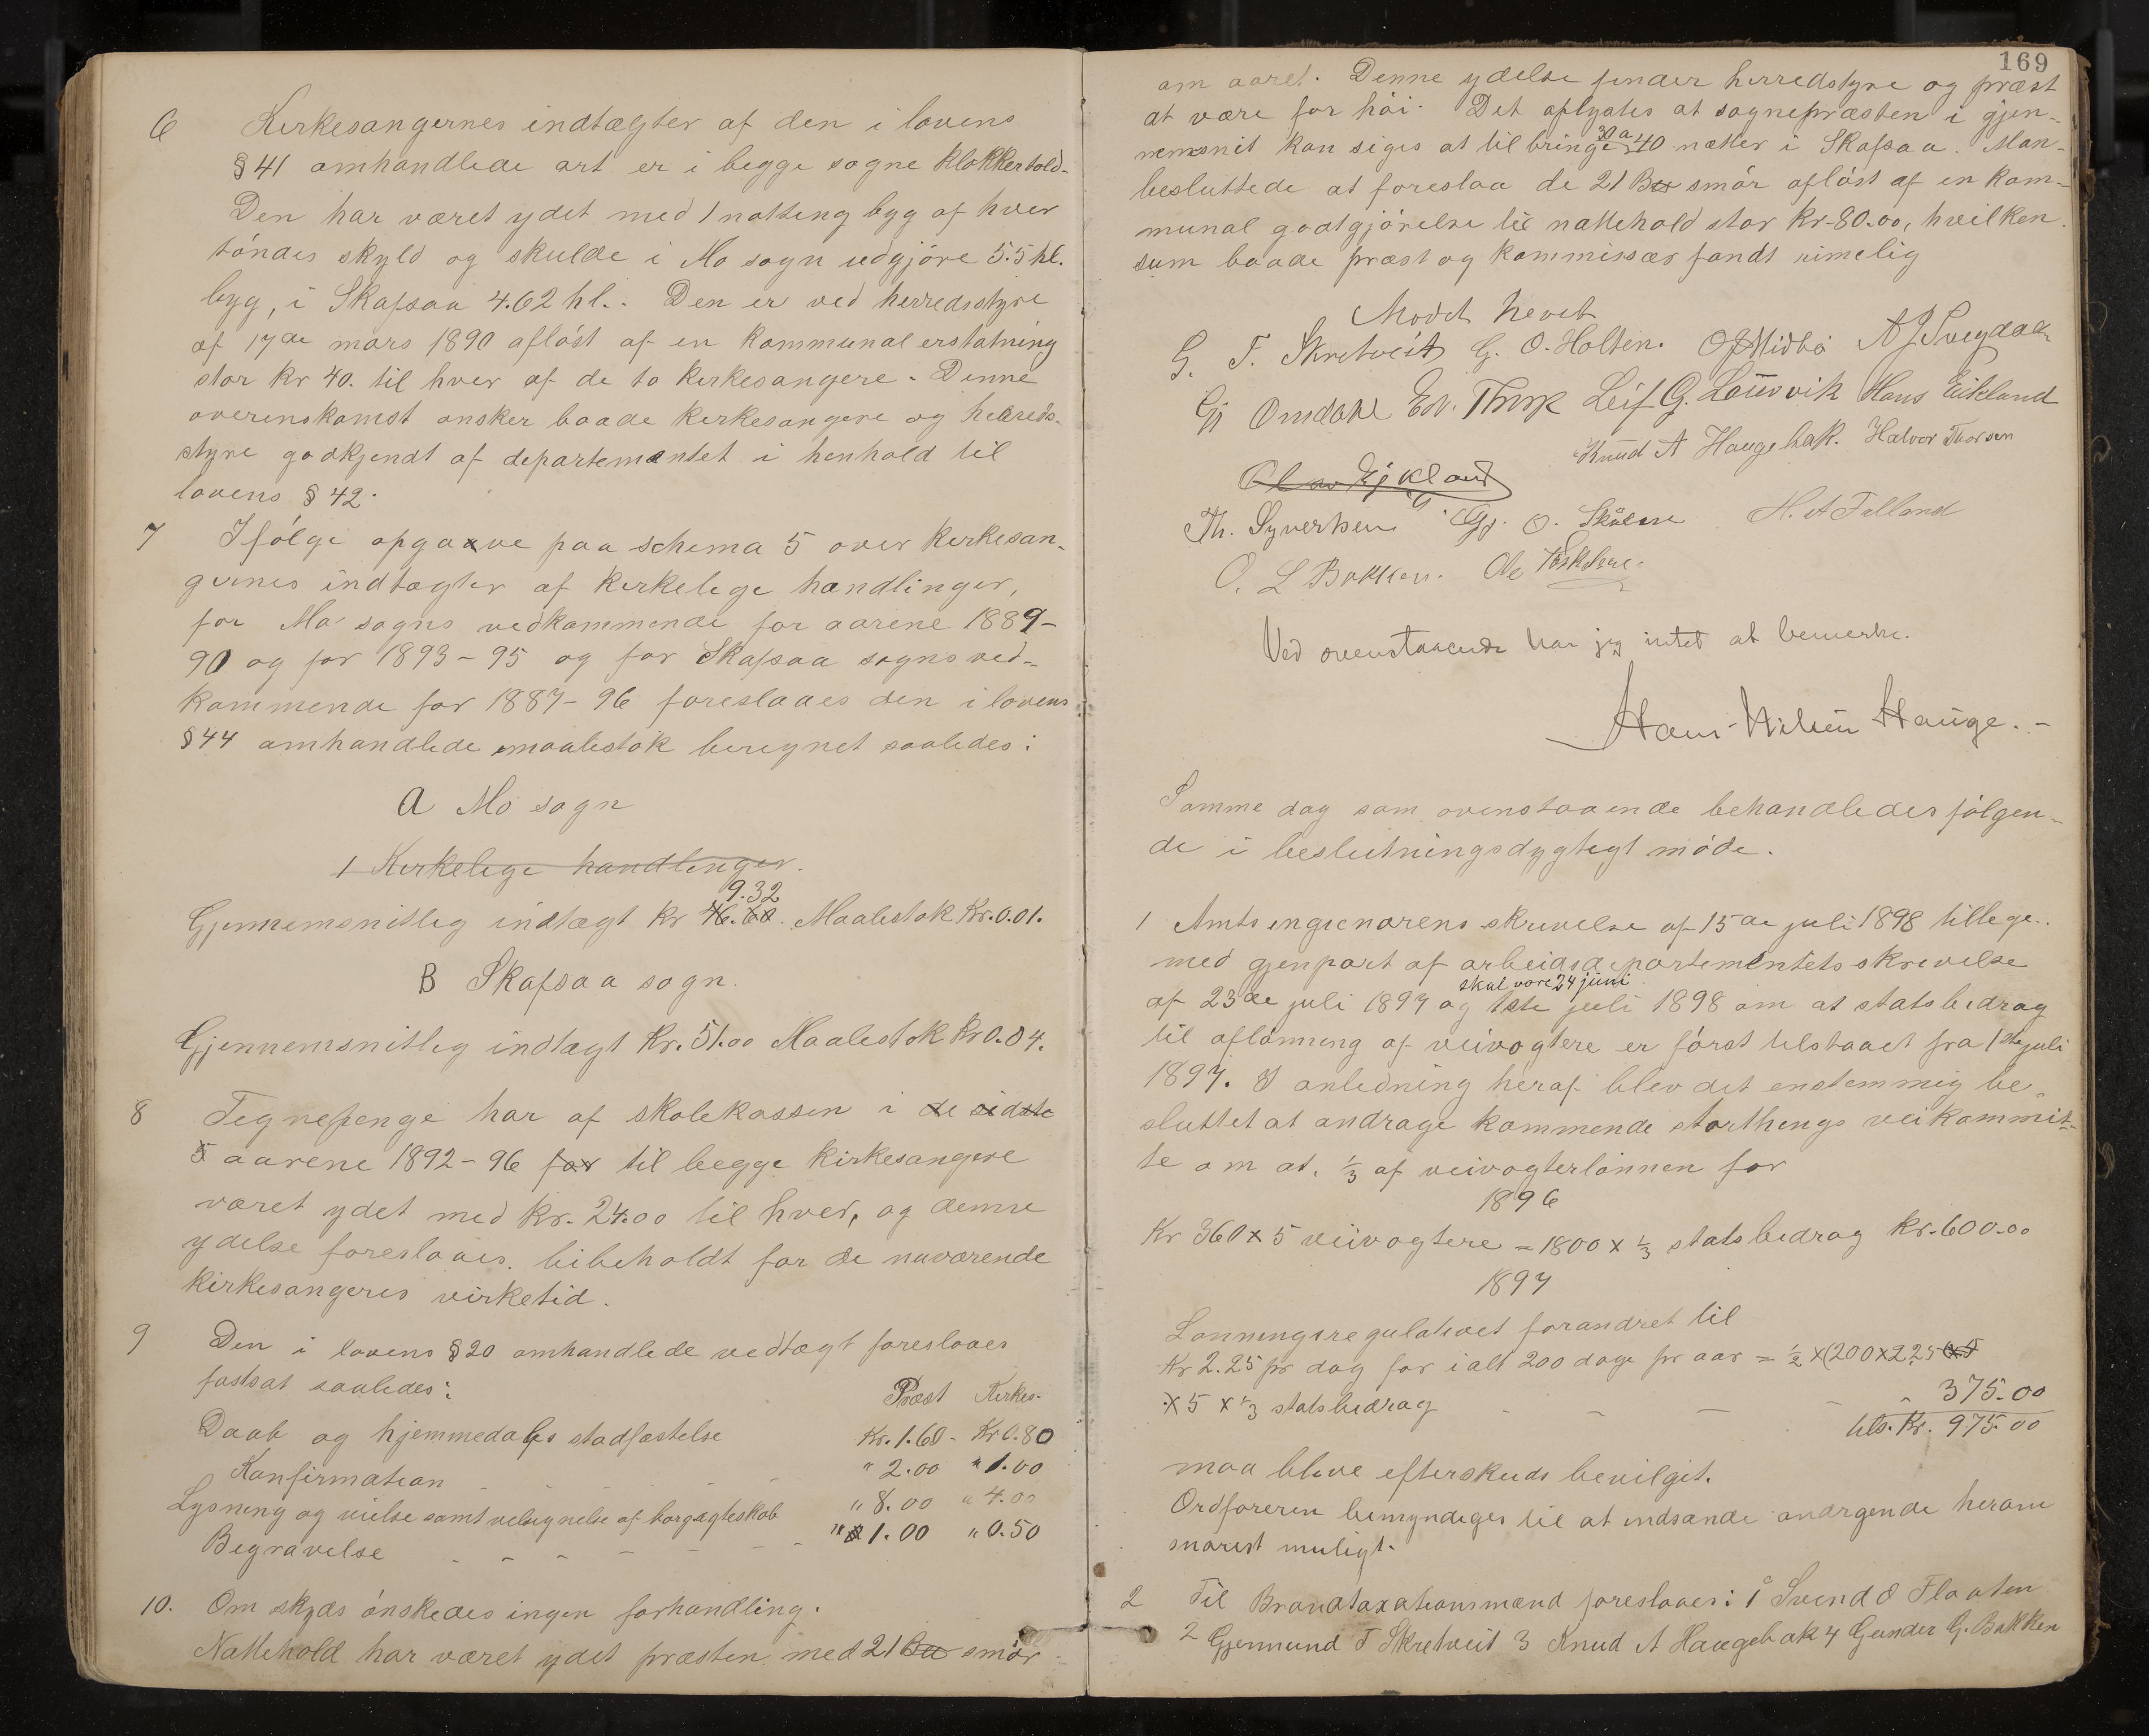 6 Kirkesangernes indtægter af den i lovens
§ 41 omhandlede art er i begge sogne klokkertold-
Den har været ydet med 1 notting byg af hver
tóndes skyld og skulde i Mo sogn udgjóre 5.5 hl.
byg, i Skafsaa 4.62 hl.. Den er ved herredsstyre
af 17de mars 1890 aflóst af en kommunal erstatning
stor kr 40. til hver af de to kirkesangere. Denne
overenskomst ønsker baade kirkesangere og herreds-
styre godkjendt af departementet i henhold til
lovens § 42.
7 Ifólge opgaave paa schema 5 over kirkesan-
gernes indtægter af kirkelige handlinger,
for Mo sogns vedkommende for aarene 1889-
90 og for 1893-95 og for Skafsaa sogns ved-
kommende for 1887-96 foreslaaes den i lovens
§ 44 omhandlede maalestok beregnet saaledes:
A Mo sogn
1 Kirkelige handlinger.
9.32
Gjennemsnitlig indtægt kr 46.60. Maalestok Kr. 0.01.
B Skafsaa sogn.
Gjennemsnitlig indtægt Kr. 51.00 Maalestok Kr 0.04.
8 Tegnepenge har af skolekassen i de sidste
5 aarene 1892-96 for til begge kirkesangere
været ydet med kr. 24.00 til hver, og denne
ydelse foreslaaes bibeholdt for de nuværende
kirkesangeres virketid.
9 Den i lovens § 20 omhandlede vedtægt foreslaaes
fastsat saaledes:
Præst Kirkes.
Daab og hjemmedaabs stadfæstelse Kr. 1.60 - Kr 0.80
Konfirmation " 2.00 " 1.00
Lysning og vielse samt velsignelse af borg.ægteskab " 8.00 " 4.00
Begravelse " 1.00 " 0.50
10. Om skyds ónskedes ingen forhandling.
Nattehold har været ydet præsten med 21 smór
169
om aaret. Denne ydelse finder herredstyre og præst
at være for hói. Det oplystes at sognepræsten i gjen-
30 a
nemsnit kan siges at tilbringe 40 nætter i Skafsaa. Man
besluttede at foreslaa de 21 smór aflóst af en kom-
munal godtgjórelse til nattehold stor kr. 80.00, hvilken
sum baade præst og kommissær fandt rimelig
Modet hevet
G. T. Skretveit G. O. Holten. O J Midbó A J Sveydal
Gj Omdahl Edv. Thorp Leif G. Lauvvik Hans Eikland
Knud A Haugebak. Halvor Thorsen
Olav Ejkland
Th. Syversen Gj. O. Skålne H. A Felland
O. L Bakken. Ole
Ved ovenstaaende har jeg intet at bemerke.
Hans Nilsen Hauge. -
Samme dag som ovenstaaende behandledes fólgen-
de i beslutningsdygtigt móde.
1 Amtsingeniørens skrivelse af 15de juli 1898 tillege
med gjenpart af arbeidsdepartementets skrivelse
skal være 24 juni
af 23de juli 1897 og 1ste juli 1898 om at statsbidrag
til aflónning af veivogtere er fórst tilstaaet fra 1ste juli
1897. I anledning heraf blev det enstemmig be-
sluttet at andrage kommende storthings veikommit-
te om at 1/3 af veivogterlónnen for
1896
Kr 360 x 5 veivogtere = 1800 x 1/3 statsbidrag kr. 600.00
1897
Lønningsregulativet forandret til
Kr 2.25 pr dag for ialt 200 dage pr aar = 1/2 x (200 x 2.25 x 5
x 5 x 1/3 statsbidrag - - - - " 375.00
tils. Kr. 975.00
maa blive efterskuds bevilget.
Ordføreren bemyndiges til at indsende andragende herom
snarest muligt.
2 Til Brandtaxationsmænd foreslaaes: 1 Svend O Flaaten
2 Gjermund T Skretveit 3 Knud A Haugebak 4 Gunder G. Bakken